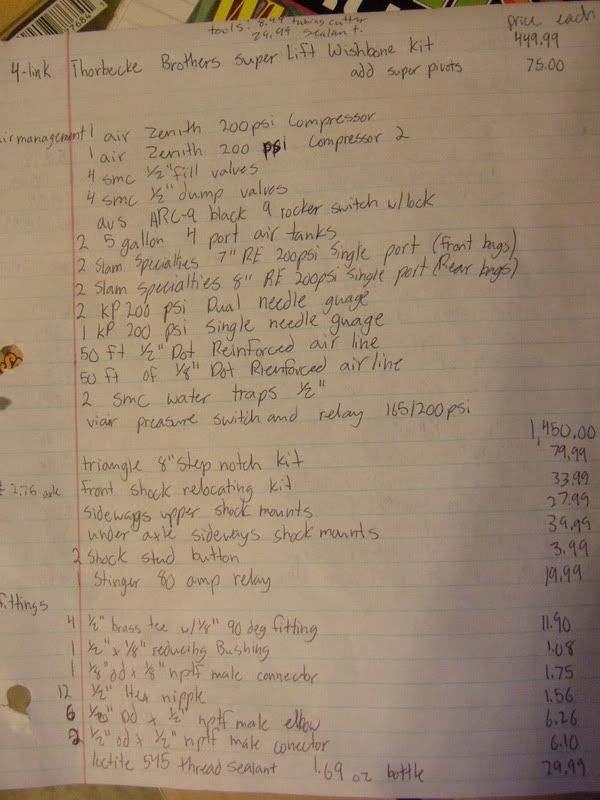 77684
tools: 8.49 tubing cutter
29.99 sealant.
price each
4-link Thorbecke Brothers super Lift Wishbone kit 449.99
add super pivots 75.00
air management 1 air Zenith 200psi Compressor
1 air Zenith 200 psi Compressor 2
4 smc 1/2" fill valves
4 smc 1/2" dump valves
avs ARC-9 black 9 rocker switch w/lock
2 5 gallon 4 port air tanks
2 Slam Specialties 7" RE 200psi Single port (front bags)
2 Slam specialties 8" RE 200psi single port (Rear bags)
2 KP 200 psi Dual needle guage
1 KP 200 psi Single needle guage
50 ft 1/2" Dot Reinforced air line
50 ft of 1/8" Dot Rienforced air line
2 smc water traps 1/2"
viair preasure switch and relay 165/200psi
1,450.00
triangle 8" step notch kit 79.99
2.75 axle front shock relocating kit 33.99
sideways upper shock mounts 27.99
under axle sideways shock mounts 39.99
2 shock stud button 3.99
1 Stinger 80 amp relay 19.99
fittings
4 1/2" brass tee w/1/8" 90 deg fitting 11.90
1 1/2" x 1/8" reducing Bushing 1.08
1 1/8" od x 1/8" nptf male connector 1.75
12 1/2" Hex nipple 1.56
6 1/2" Od x 1/2" nptf male elbow 6.26
2 1/2" od x 1/2" nptf male conector 6.10
loctite 545 thread sealant 1.69 oz bottle 29.99